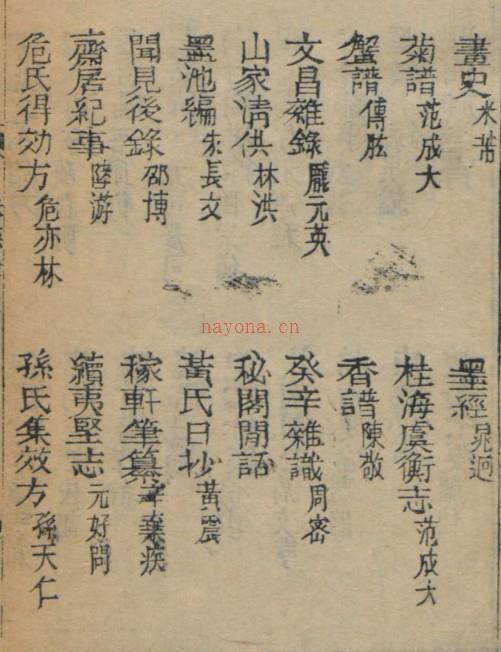 畫史 米芾
墨經 晁迥
菊譜 范成大
桂海虞衡志 范成大
蟹譜 傅肱
香譜 陳敬
文昌雜錄 龐元英
癸辛雜識 周密
山家清供 林洪
秘閣閒話
墨池編 朱長文
黃氏日抄 黃震
聞見後錄 邵博
稼軒筆纂 辛棄疾
齋居紀事 陸游
續夷堅志 元好問
危氏得効方 危亦林
孫氏集效方 孫天仁
nayona.cn